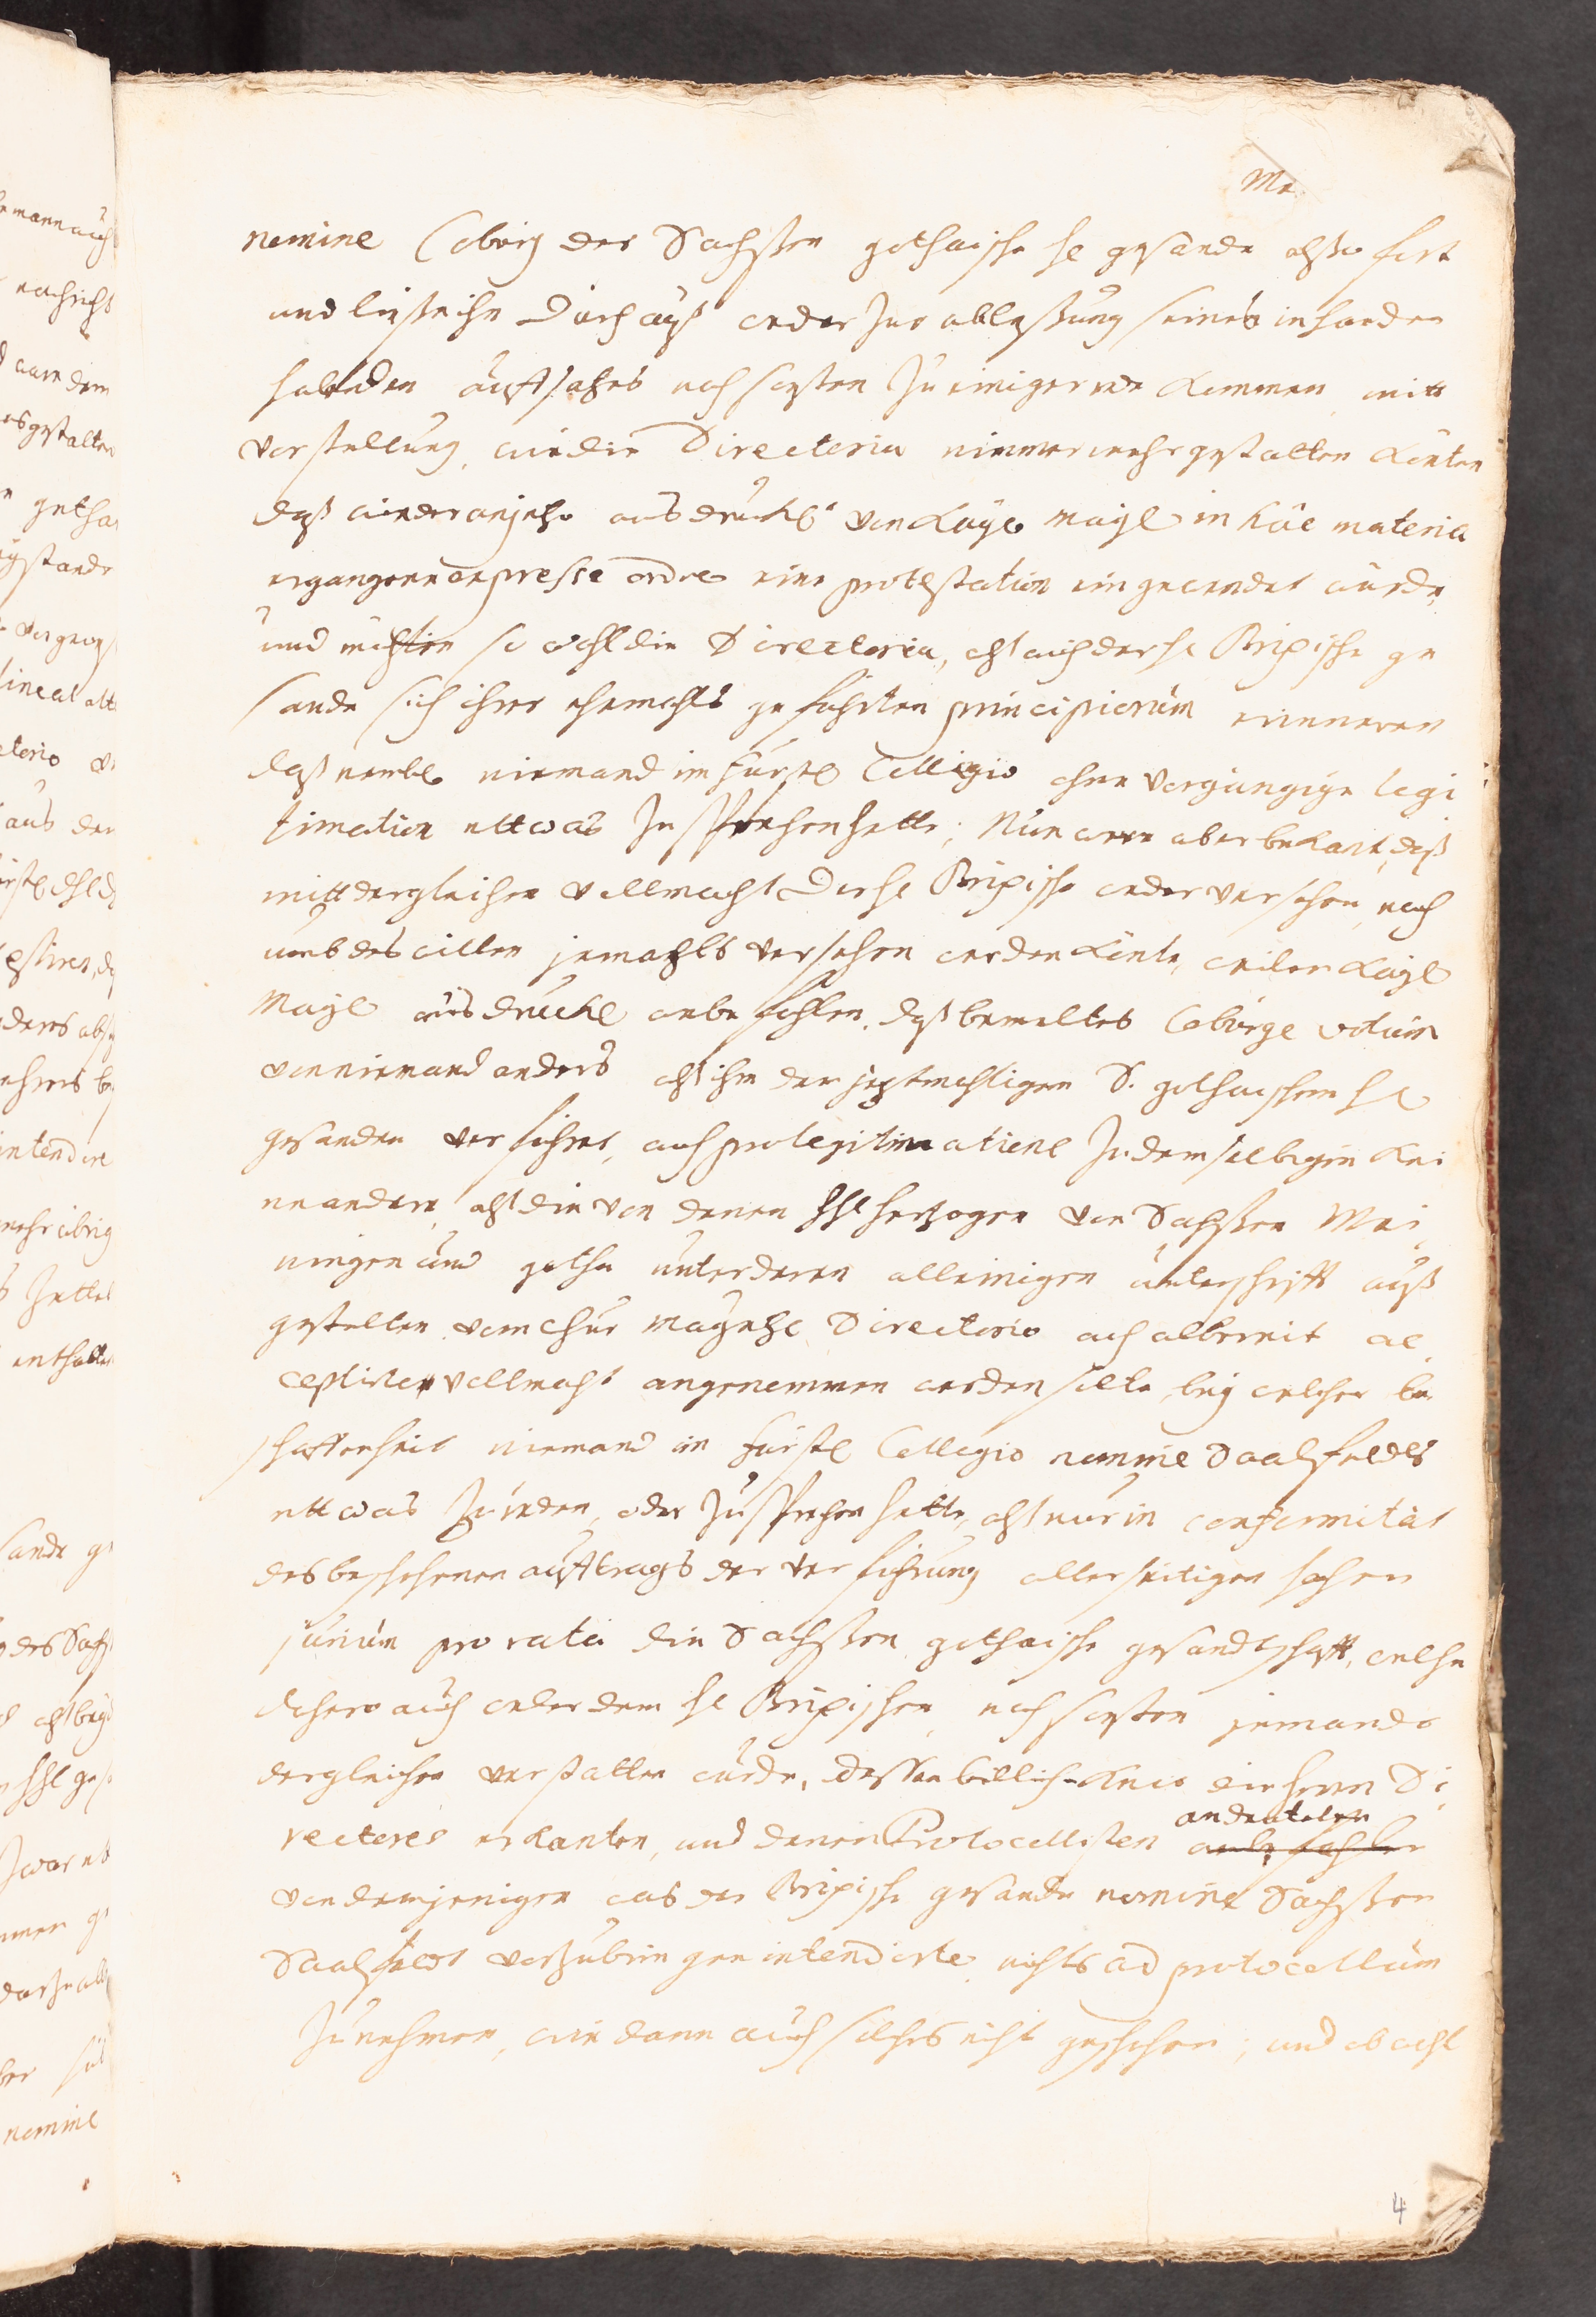 Me.
nomine Coburg der Sachßen gothaische H. gesande alßo fort
und ließe ihn durchauß weder zur ableßung seines in handen
habenden auffsatzes noch sonsten zu einiger rede kommen, mitt
vorstellung, wie die Directoria nimmermehr gestatten könten
daß wieder anjetzo ausdrückl. von Kayl. mayl in hac materia
ergangene expresse ordre eine protestation eingewendet würde,
und möchten so wohl die Directoria, alß auch der H. Brixische ge
sande sich ihrer ehemahls geführten principiorum erinneren
daß nembl. niemand im fürstl. Collegio ohne vorgängige legi
timation ettwas zu sprechen hette; Nun were aber bekant, daß
mitt dergleichen vollmacht der H. Brixische weder versehen, noch
umb des willen jemahls versehen werden könte, weilen Kayl.
Mayl. ausdrückl. anbefohlen, daß bemeltes Coburg. votum
von niemand anders alß ihm dem jeztmahligen S. gothaischem H.
gesanden verführet, auch pro legitimatione zu demselbigen kei
ne andere, alß die von denen HH. Hertzogen von Sachßen Mei
ningen und gotha unter deren alleinigen unterschrifft auß
gestellte vom Chur Mayntz. Directorio auch allbereit ac
ceptirte vollmacht angenommen werden solte, bey welcher be
schaffenheit niemand in fürstl. Collegio nomine Saalfeldts
ettwas zu reden, oder zu sprechen hette, alß nur in conformität
des beschehenen aufftrags der verführung allerseitigen hohen
jurium pro rata die Sachßen gothaische gesandtschafft, welche
dahero auch weder dem H. Brixischen, noch sonsten jemando
dergleichen verstatten würde, dessen billichkeit die herren Di
rectores erkanten, und denen Protocollisten andeuteten
anbefohlen
von demjenigen was der Brixische gesande nomine Sachßen
Saalfeldt vorzubringen intendirte nichts ad protocollum
zu nehmen, wie dann auch solches nicht geschehen; und obwohl
4